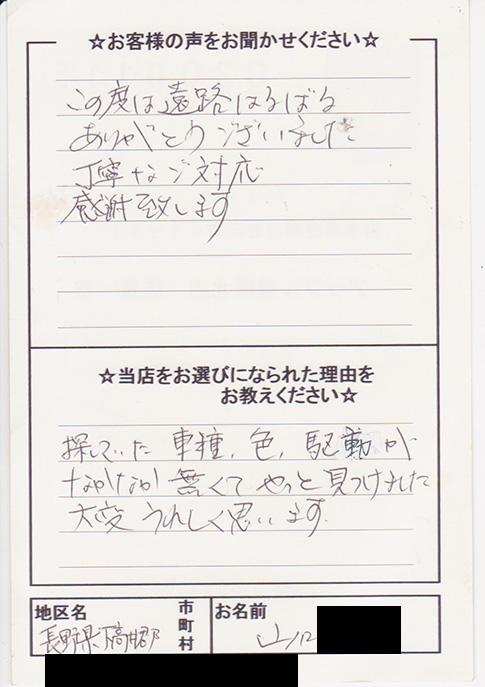 ☆お客様の声をお聞かせください☆
この度は遠路はるばる
ありがとうございました
丁寧なご対応
感謝致します
☆当店をお選びになられた理由を
お教えください☆
探していた車種、色、駆動が
なかなか無くてやっと見つけました
大変うれしく思います。
地区名
市町村
長野県下高井郡
お名前
山口